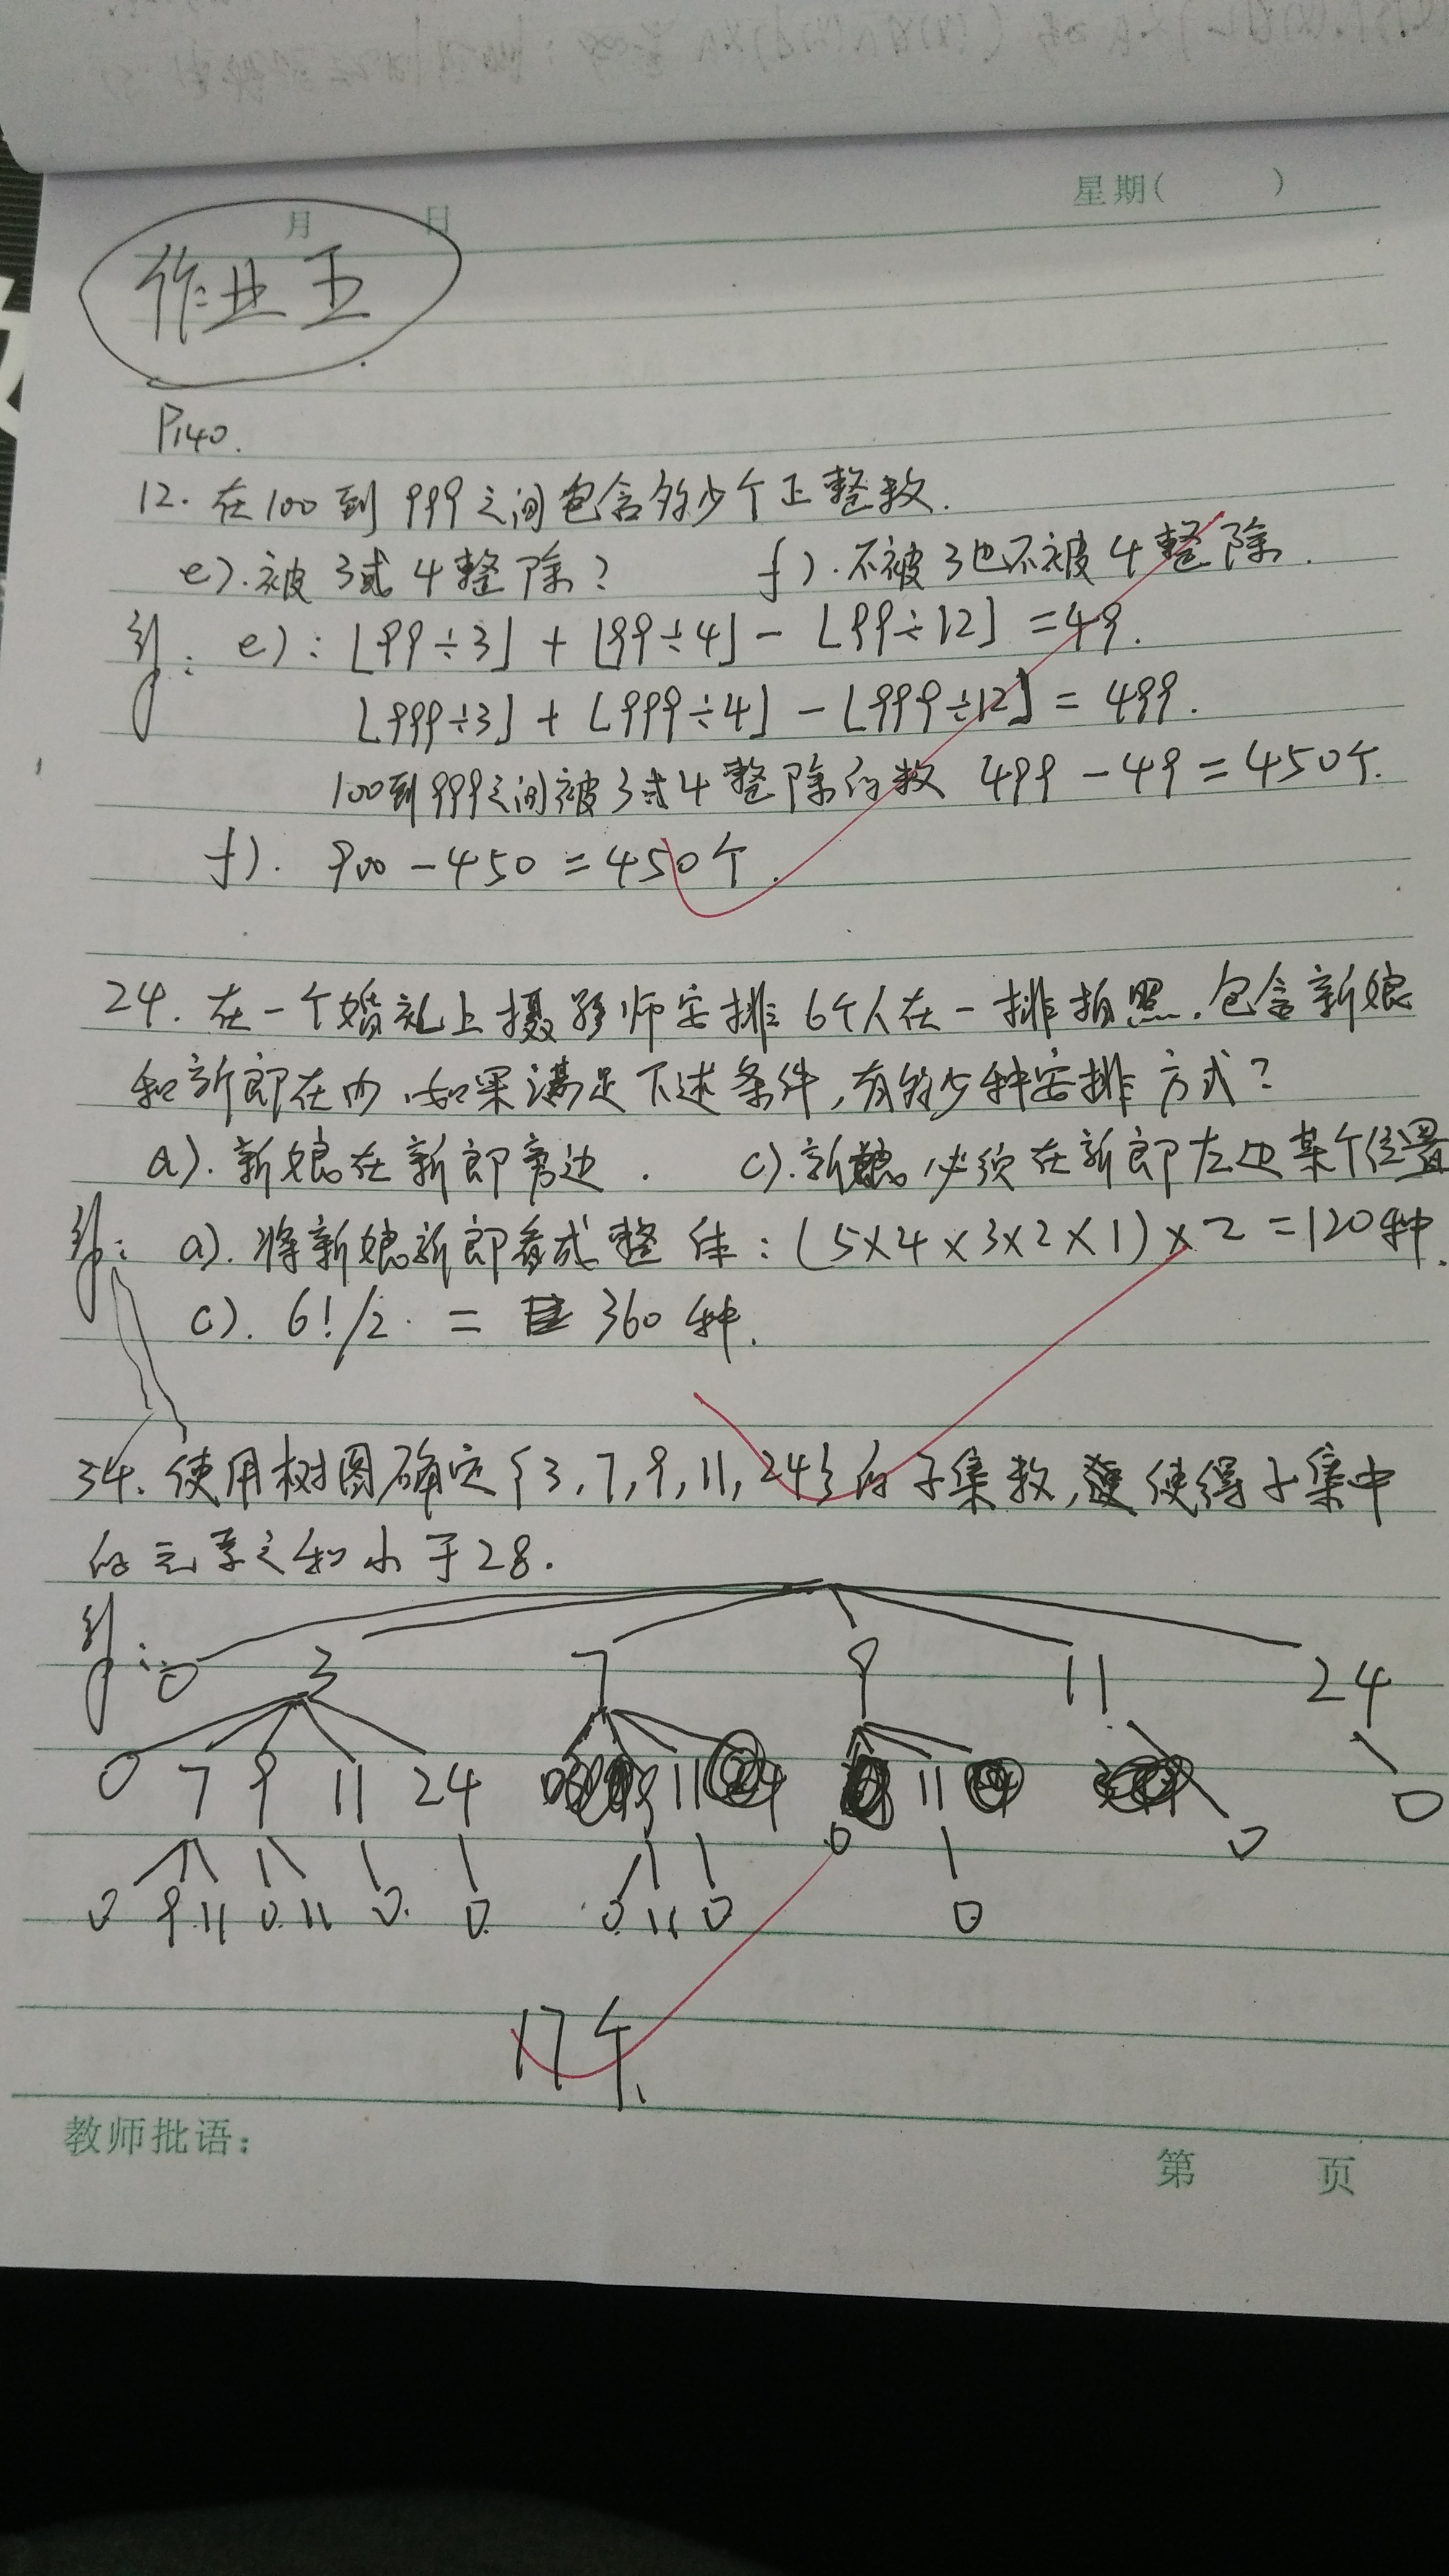 月 日 星期( )
作业五
P140.
12. 在100到999之间包含多少个正整数.
e). 被3或4整除? f). 不被3也不被4整除.
解: e): ⌊99÷3⌋ + ⌊99÷4⌋ - ⌊99÷12⌋ = 49.
⌊999÷3⌋ + ⌊999÷4⌋ - ⌊999÷12⌋ = 499.
100到999之间被3或4整除的数 499 - 49 = 450个.
f). 900 - 450 = 450个.
24. 在一个婚礼上摄影师安排6个人在一排拍照,包含新娘
和新郎在内,如果满足下述条件,有多少种安排方式?
a). 新娘在新郎旁边. c). 新娘必须在新郎左边某个位置
解: a). 将新娘新郎看成整体: (5×4×3×2×1)×2 = 120种.
c). 6!/2. = 360种.
34. 使用树图确定{3,7,9,11,24}的子集数,使得子集中
的元素之和小于28.
解: 0 3 7 9 11 24
0 7 9 11 24 9 11 11 0
0 0
0 9 11 0 11 0 0 0 11 0 0
17个.
教师批语:
第 页